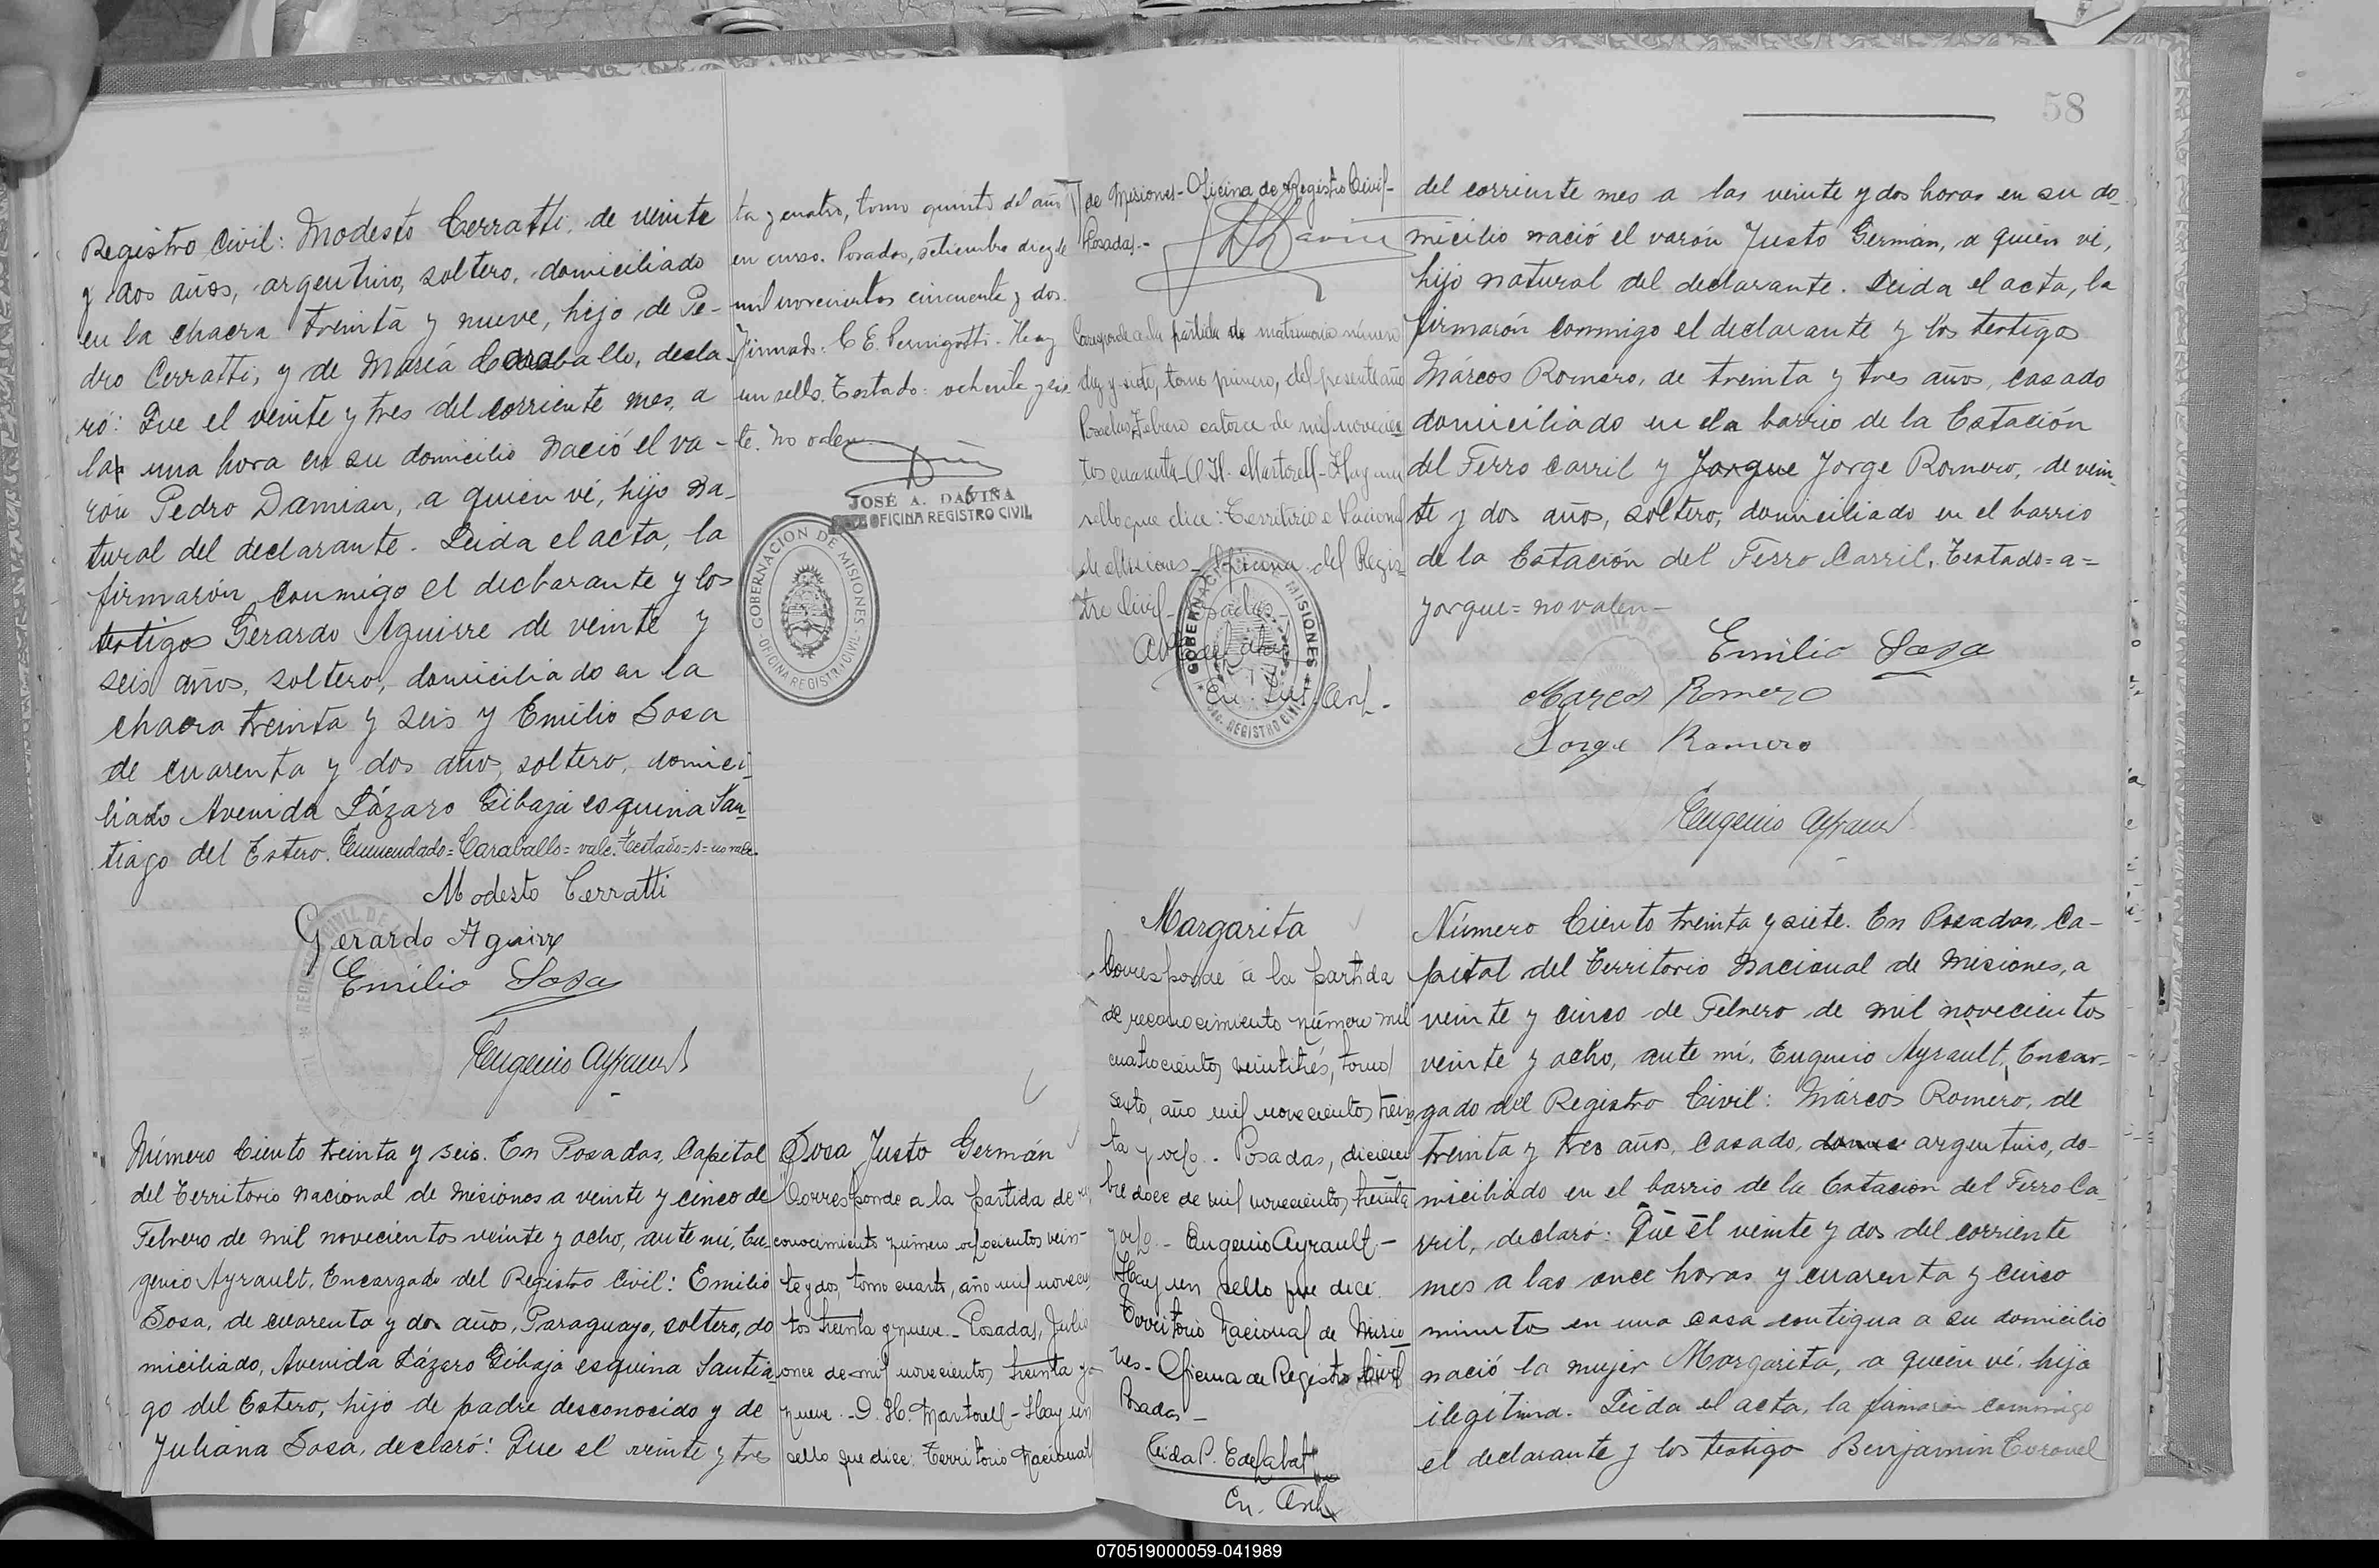 58
Registro Civil: Modesto Cerratti, de veinte
y dos años, argentino, soltero, domiciliado
en la chacra treinta y nueve, hijo de Pe-
dro Cerratti, y de María Caraballo, decla-
ró: Que el veinte y tres del corriente mes, a
las una hora en su domicilio nació el va-
rón Pedro Damian, a quien ví, hijo na-
tural del declarante. Leida el acta, la
firmarón conmigo el declarante y los
testigos Gerardo Aguirre de veinte y
seis años, soltero, domiciliado en la
chacra treinta y seis y Emilio Sosa
de cuarenta y dos años, soltero, domici-
liado Avenida Lázaro Gibaja esquina San-
tiago del Estero. Enmendado=Caraballo=vale. Testado=s=no vale.
Modesto Cerratti
Gerardo Aguirre
Emilio Sosa
Eugenio Ayrault
ta y cuatro, tomo quinto del año
en curso. Posadas, setiembre diez de
mil novecientos cincuenta y dos.
Firmado: C E. Pernigotti. Hay
un sello. Testado: ochenta y sie
te. no valen
JOSÉ A. DAVIÑA
OFICINA REGISTRO CIVIL
GOBERNACION DE MISIONES
OFICINA REGISTRO CIVIL
Número Ciento treinta y seis. En Posadas, Capital
del Territorio Nacional de Misiones a veinte y cinco de
Febrero de mil novecientos veinte y ocho, ante mí, Eu-
genio Ayrault, Encargado del Registro Civil: Emilio
Sosa, de cuarenta y dos años, Paraguayo, soltero, do
miciliado, Avenida Lázaro Gibaja esquina Santia-
go del Estero, hijo de padre desconocido y de
Juliana Sosa, declaró: Que el veinte y tres
Sosa Justo Germán
Corresponde a la partida de re
conocimiento número ochocientos vein-
te y dos, tomo cuarto, año mil novecien
tos treinta y nueve. Posadas, Julio
once de mil novecientos treinta y
nueve. - D. H. Martorell - Hay un
sello que dice: Territorio Nacional
de Misiones - Oficina de Registro Civil -
Posadas.-
Corresponde a la partida de matrimonio número
diez y siete, tomo primero, del presente año
Posadas, Febrero catorce de mil novecien
tos cuarenta - D. H. Martorell - Hay un
sello que dice: Territorio Nacional
de Misiones - Oficina del Regis-
tro Civil - Posadas
GOBERNACION DE MISIONES
REGISTRO CIVIL
del corriente mes a las veinte y dos horas en su do
micilio nació el varón Justo Germán, a quien ví,
hijo natural del declarante. Leida el acta, la
firmarón conmigo el declarante y los testigos
Márcos Romero, de treinta y tres años, casado
domiciliado en el a barrio de la Estación
del Ferro Carril y Jorgue Jorge Romero, de vein-
te y dos años, soltero, domiciliado en el barrio
de la Estación del Ferro Carril. Testado=a=
yorgue=no valen-
Emilio Sosa
Marcos Romero
Jorge Romero
Eugenio Ayrault
Margarita
Corresponde a la partida
de reconocimiento número mil
cuatrocientos veintitrés, tomo
sexto, año mil novecientos trein
ta y ocho. Posadas, diciem
bre doce de mil novecientos treinta
y ocho - Eugenio Ayrault -
Hay un sello que dice.
Territorio Nacional de Misio
nes - Oficina de Registro Civil
Posadas -
En. Arch
Número Ciento treinta y siete. En Posadas, Ca-
pital del Territorio Nacional de Misiones, a
veinte y cinco de Febrero de mil novecientos
veinte y ocho, ante mí, Eugenio Ayrault, Encar-
gado del Registro Civil: Márcos Romero, de
treinta y tres años, casado, argentino, do-
miciliado en el barrio de la Estación del Ferro Ca-
rril, declaró: Que el veinte y dos del corriente
mes a las once horas y cuarenta y cinco
minutos en una casa contigua a su domicilio
nació la mujer Margarita, a quien ví, hija
ilegítima. Leida el acta, la firmaron conmigo
el declarante y los testigo Benjamin Coronel
070519000059-041989